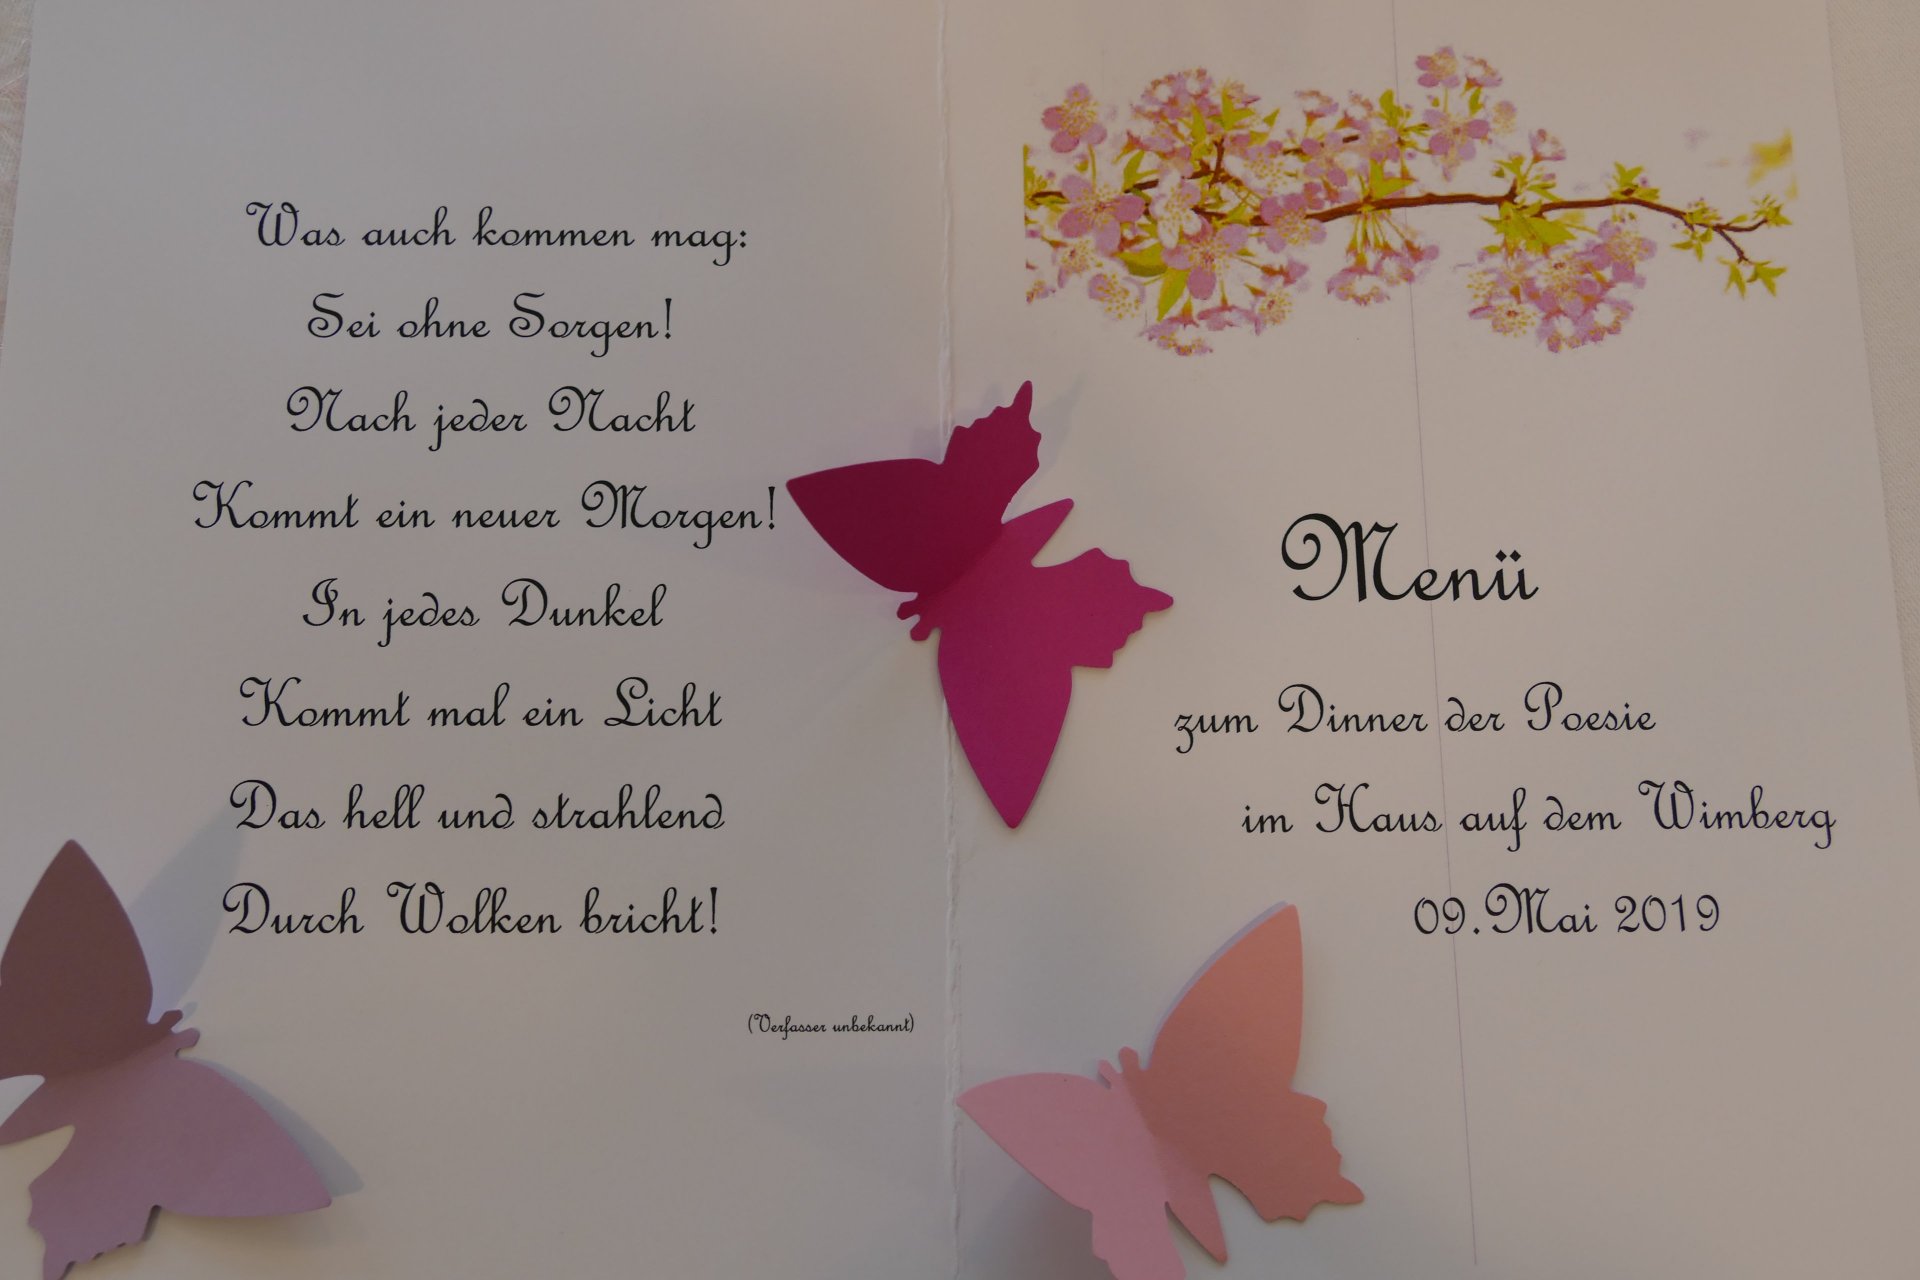 Was auch kommen mag:
Sei ohne Sorgen!
Nach jeder Nacht
Kommt ein neuer Morgen!
In jedes Dunkel
Kommt mal ein Licht
Das hell und strahlend
Durch Wolken bricht!
(Verfasser unbekannt)
Menü
zum Dinner der Poesie
im Haus auf dem Wimberg
09.Mai 2019